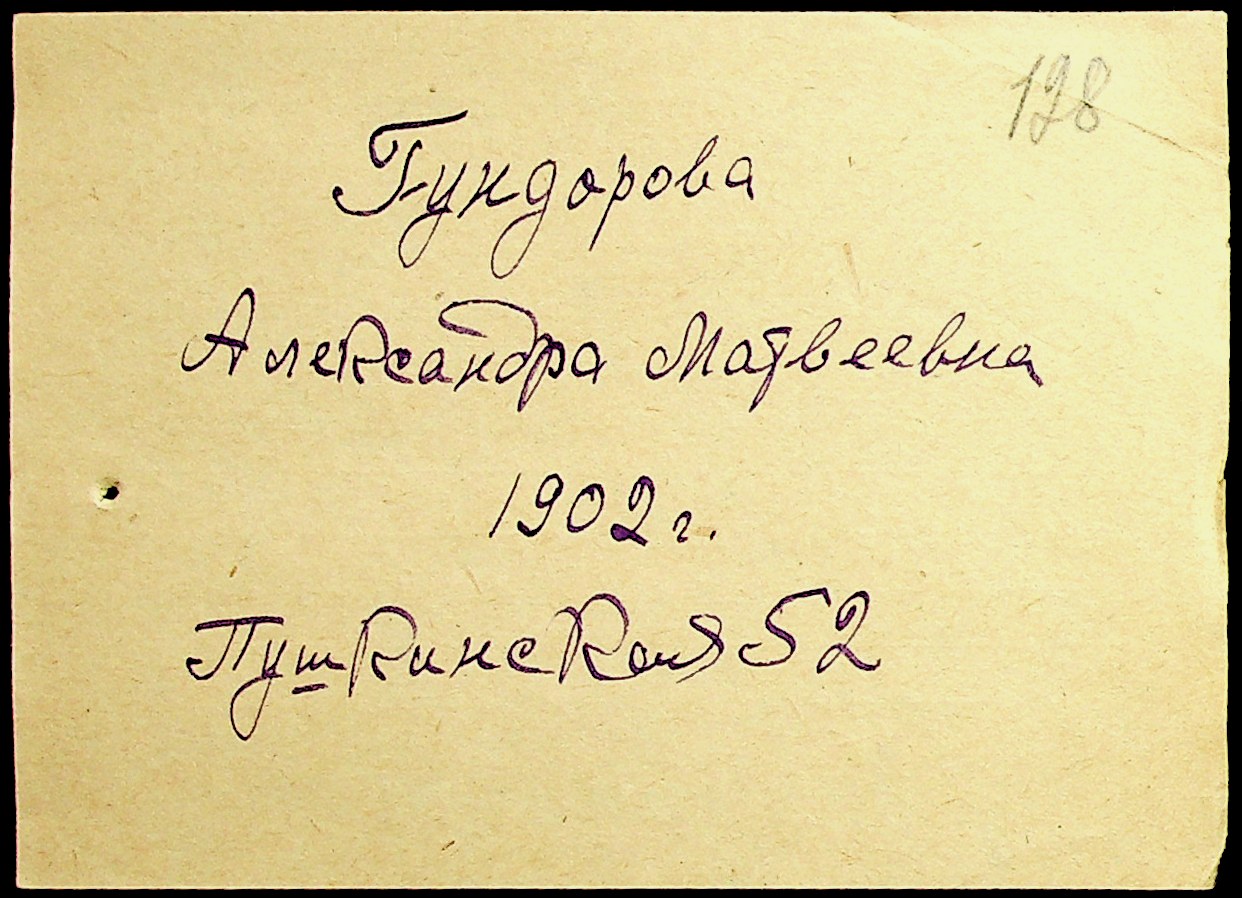 128
Гундорова
Александра Матвеевна
1902 г.
Пушкинская 52